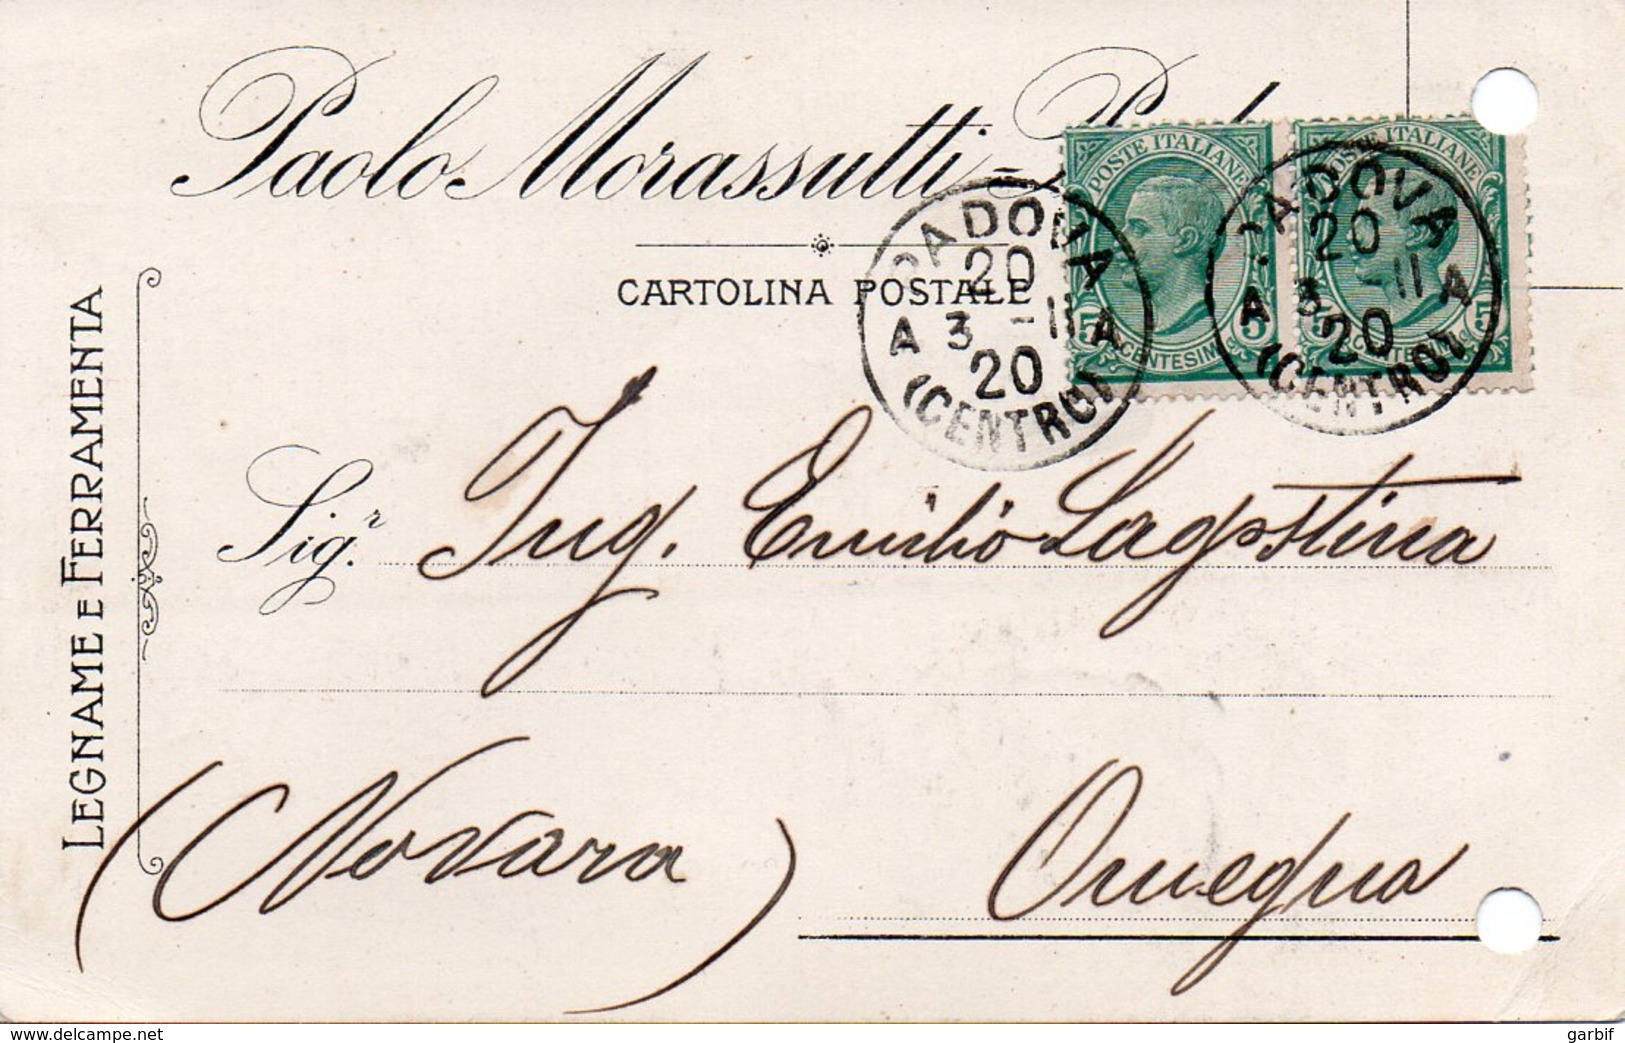 Paolo Morassutti =
POSTE ITALIANE
5 CENTESIMI 5
POSTE ITALIANE
5 CENTESIMI 5
PADOVA
20
A 3 -11 A
20
(CENTRO)
PADOVA
20
A 3 -11 A
20
(CENTRO)
CARTOLINA POSTALE
LEGNAME E FERRAMENTA
Sigr. Ing. Emilio Lagostina
(Novara) Omegna
www.delcampe.net
garbif